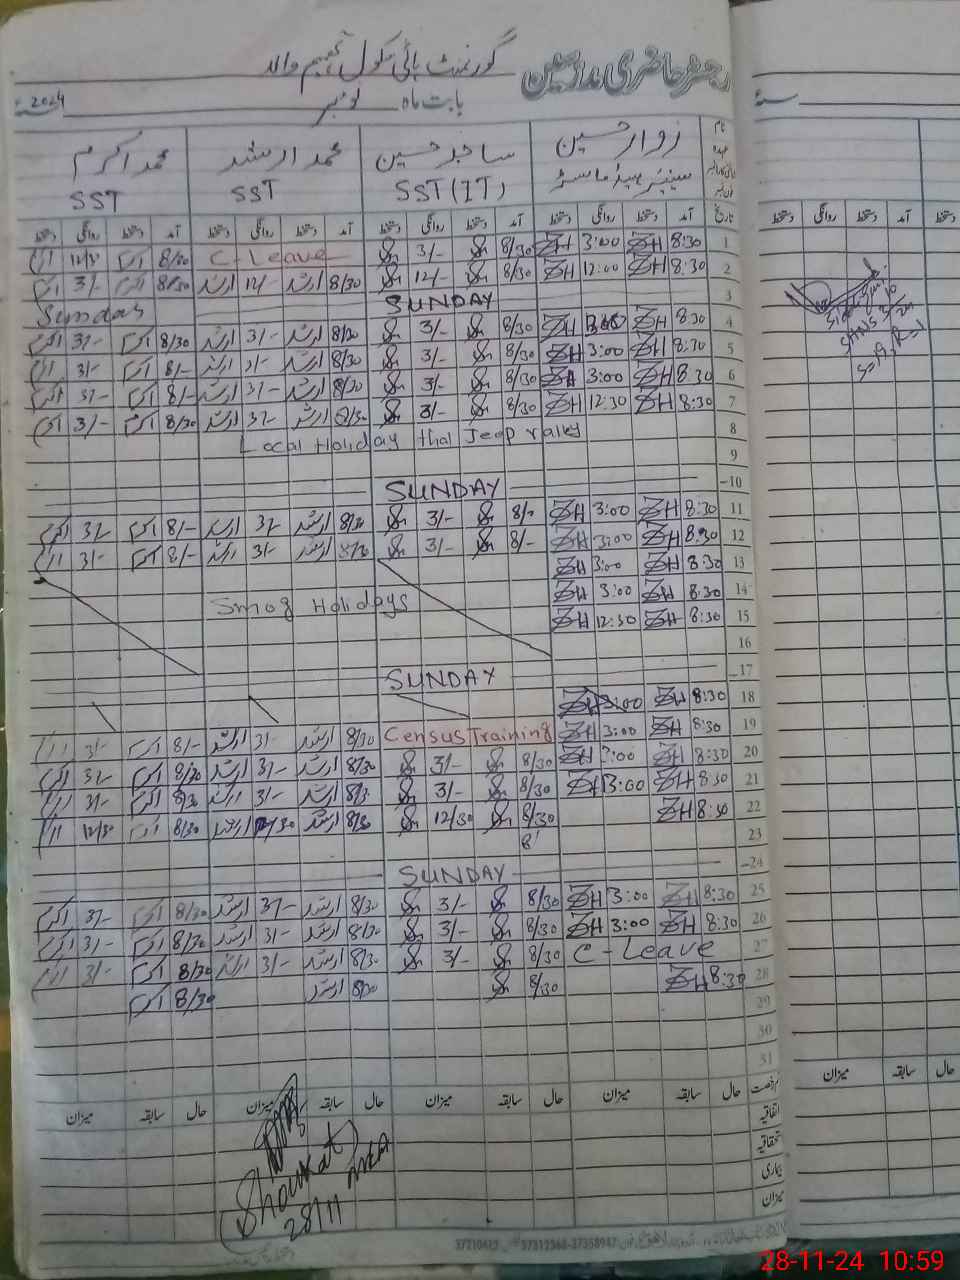 رجسٹر حاضری مدرسین گورنمنٹ ہائی سکول
بابت ماہ نومبر 2024
نام زوار حسین ساجد حسین محمد ارشد محمد اکرم
عہدہ سینئر ہیڈ ماسٹر SST (IT) SST SST
تاریخ آمد دستخط روانگی دستخط آمد دستخط روانگی دستخط آمد دستخط روانگی دستخط آمد دستخط روانگی دستخط
1 8:30 ZH 3:00 ZH 8/30 3/- C-Leave 8/30 اکرم 12/30
2 8:30 ZH 12:00 ZH 8/30 12/- 8/30 ارشد 12/- ارشد 8/30 اکرم 3/-
3 SUNDAY Sunday
4 8:30 ZH ZH 8/30 3/- 8/30 ارشد 3/- ارشد 8/30 اکرم 3/- اکرم
5 8:30 ZH 3:00 ZH 8/30 3/- 8/30 ارشد 3/- ارشد 8/- اکرم 3/-
6 8:30 ZH 3:00 ZH 8/30 3/- 8/30 ارشد 3/- ارشد 8/- اکرم 3/- اکرم
7 8:30 ZH 12:30 ZH 8/30 3/- 8/30 ارشد 3/- ارشد 8/30 اکرم 3/-
8 Local Holiday thal Jeep ralley
9
10 SUNDAY
11 8:30 ZH 3:00 ZH 8/- 3/- 8/30 ارشد 3/- ارشد 8/- اکرم 3/- اکرم
12 8:30 ZH 3:00 ZH 8/- 3/- 8/30 ارشد 3/- ارشد 8/- اکرم 3/-
13 8:30 ZH 3:00 ZH
14 8:30 ZH 3:00 ZH Smog Holidays
15 8:30 ZH 12:30 ZH
16
17 SUNDAY
18 8:30 ZH 3:00 ZH
19 8:30 ZH 3:00 ZH Census Training 8/30 ارشد 3/- ارشد 8/- اکرم 3/-
20 8:30 ZH 3:00 ZH 8/30 3/- 8/30 ارشد 3/- ارشد 8/30 اکرم 3/- اکرم
21 8:30 ZH 3:00 ZH 8/30 3/- 8/30 ارشد 3/- ارشد 8/30 اکرم 3/-
22 8:30 ZH 8/30 12/30 8/30 ارشد 12/30 ارشد 8/30 اکرم 12/30
23 8
24 SUNDAY
25 8:30 ZH 3:00 ZH 8/30 3/- 8/30 ارشد 3/- ارشد 8/30 اکرم 3/- اکرم
26 8:30 ZH 3:00 ZH 8/30 3/- 8/30 ارشد 3/- ارشد 8/30 اکرم 3/- اکرم
27 C-Leave 8/30 3/- 8/30 ارشد 3/- ارشد 8/30 اکرم 3/-
28 8:30 ZH 8/30 8/30 ارشد 8/30 اکرم
29
30
31
رخصت حال سابقہ میزان حال سابقہ میزان حال سابقہ میزان حال سابقہ میزان
اتفاقیہ
بیماری
میزان
Shoukat
MEA
28/11
37210425 37312368-37358947
سنہ
دستخط روانگی دستخط آمد دستخط
میزان سابقہ حال
28-11-24 10:59